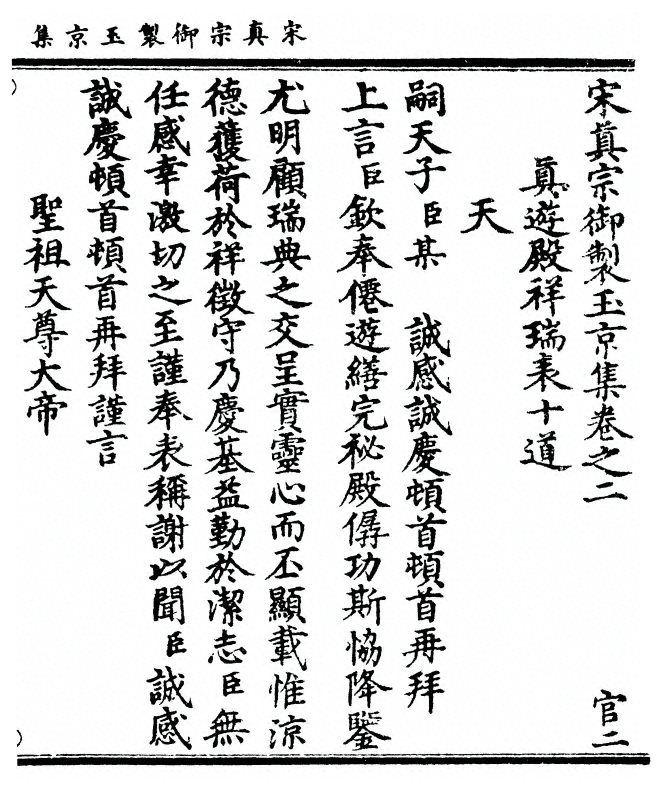 宋真宗御製玉京集
宋真宗御製玉京集卷之二　官二
真遊殿祥瑞表十道
天
嗣天子臣某　誠感誠慶頓首頓首再拜
上言臣欽奉僊遊繕完秘殿僝功斯恊降鑒
尤明顧瑞典之交呈實靈心而丕顯載惟涼
德獲荷於祥徵守乃慶基益勤於潔志臣無
任感幸激切之至謹奉表稱謝以聞臣誠感
誠慶頓首頓首再拜謹言
聖祖天尊大帝